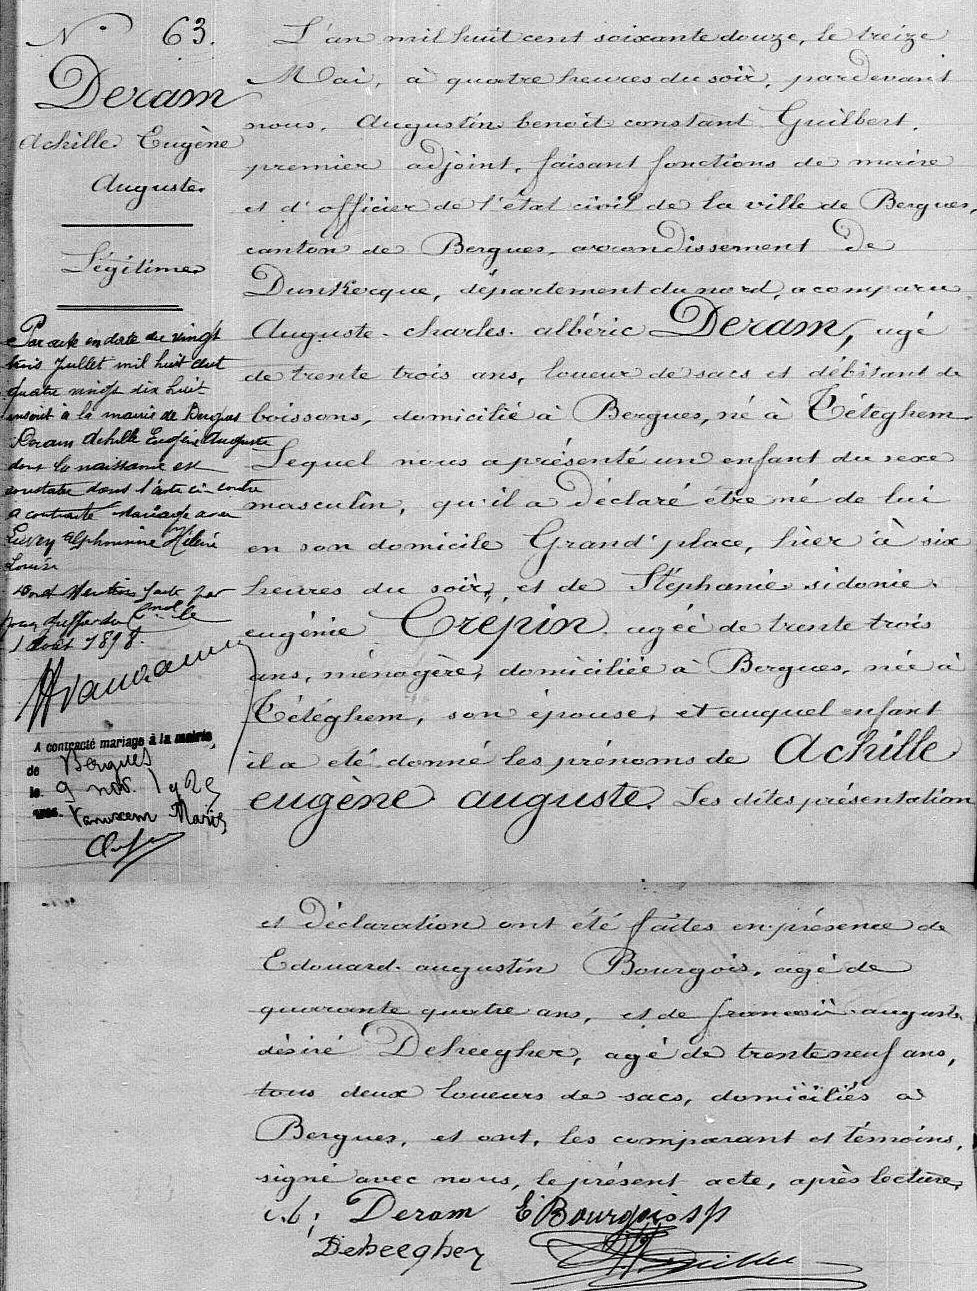 N° 63.
Deram
Achille Eugène
Auguste
Légitime
Par acte en date du vingt
trois Juillet mil huit cent
quatre vingt dix huit
inscrit à la mairie de Bergues
Deram Achille Eugène Auguste
dont la naissance est
constatée dans l'acte ci contre
a contracté mariage avec
Alphonsine Hélène
Louise
Dont Mention faite par
le
1 août 1898.
A contracté mariage à la mairie
de Bergues
le 9 nov. 1925
avec Vanuxem Marie
L'an mil huit cent soixante douze, le treize
Mai, à quatre heures du soir, pardevant
nous, Augustin benoît constant Guilbert,
premier adjoint, faisant fonctions de maire
et d'officier de l'état civil de la ville de Bergues,
canton de Bergues, arrondissement de
Dunkerque, département du nord, a comparu
Auguste charles albéric Deram, agé
de trente trois ans, loueur de sacs et débitant de
boissons, domicilié à Bergues, né à Téteghem.
Lequel nous a présenté un enfant du sexe
masculin, qu'il a déclaré être né de lui
en son domicile Grand'place, hier à six
heures du soir, et de Stéphanie sidonie
eugénie Crépin, agée de trente trois
ans, ménagère, domiciliée à Bergues, née à
Téteghem, son épouse, et auquel enfant
il a été donné les prénoms de Achille
eugène auguste. Les dites présentation
et déclaration ont été faites en présence de
Edouard augustin Bourgois, agé de
quarante quatre ans, et de francois auguste
désiré Deheegher, agé de trente neuf ans,
tous deux loueurs de sacs, domiciliés à
Bergues, et ont, les comparant et témoins,
signé avec nous, le présent acte, après lecture.
Deram E Bourgois
Deheegher